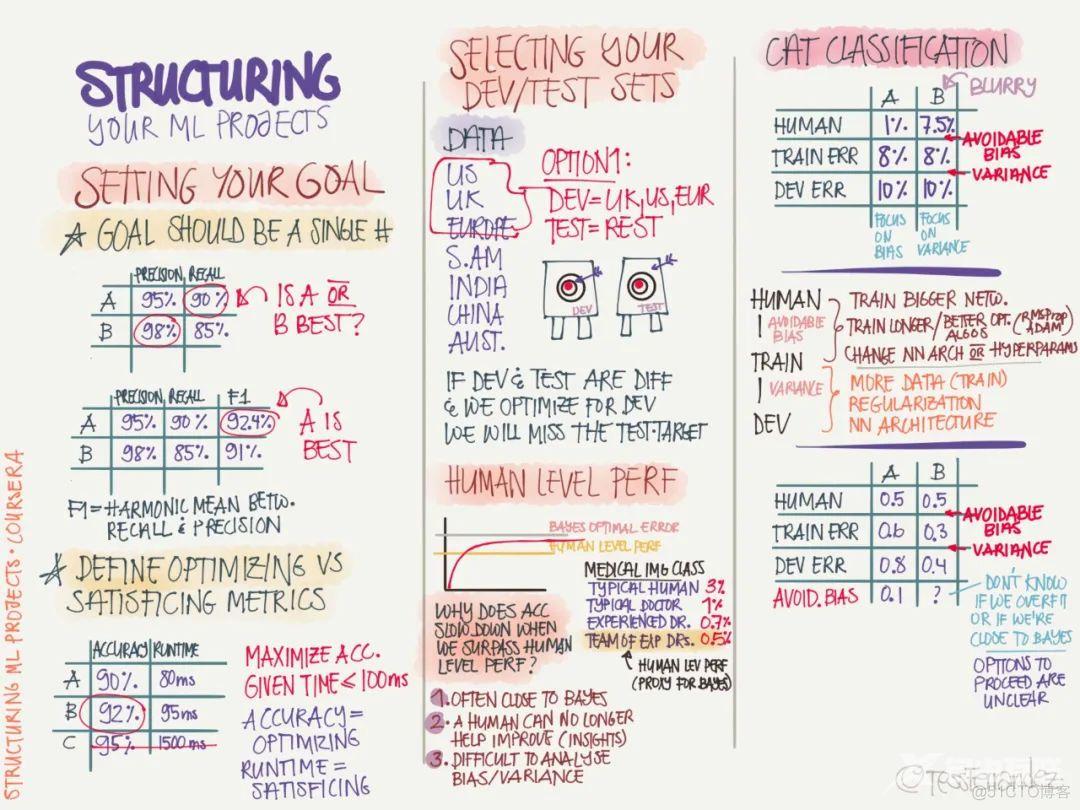 STRUCTURING
YOUR ML PROJECTS
SETTING YOUR GOAL
GOAL SHOULD BE A SINGLE #
PRECISION, RECALL
A 95% 90%
B 98% 85%
IS A OR
B BEST?
PRECISION, RECALL F1
A 95% 90% 92.4%
B 98% 85% 91%
A IS
BEST
F1 = HARMONIC MEAN BETW.
RECALL & PRECISION
DEFINE OPTIMIZING VS
SATISFICING METRICS
ACCURACY RUNTIME
A 90% 80ms
B 92% 95ms
C 95% 1500ms
MAXIMIZE ACC.
GIVEN TIME ≤ 100ms
ACCURACY =
OPTIMIZING
RUNTIME =
SATISFICING
STRUCTURING ML PROJECTS · COURSERA
SELECTING YOUR
DEV/TEST SETS
DATA
US
UK
EUROPE
S.AM
INDIA
CHINA
AUST.
OPTION1:
DEV = UK, US, EUR
TEST = REST
DEV
TEST
IF DEV & TEST ARE DIFF
& WE OPTIMIZE FOR DEV
WE WILL MISS THE TEST·TARGET
HUMAN LEVEL PERF
BAYES OPTIMAL ERROR
HUMAN LEVEL PERF
WHY DOES ACC
SLOW DOWN WHEN
WE SURPASS HUMAN
LEVEL PERF?
MEDICAL IMG CLASS
TYPICAL HUMAN 3%
TYPICAL DOCTOR 1%
EXPERIENCED DR. 0.7%
TEAM OF EXP DRS. 0.5%
HUMAN LEV PERF
(PROXY FOR BAYES)
1. OFTEN CLOSE TO BAYES
2. A HUMAN CAN NO LONGER
HELP IMPROVE (INSIGHTS)
3. DIFFICULT TO ANALYSE
BIAS/VARIANCE
CAT CLASSIFICATION
BLURRY
A B
HUMAN 1% 7.5%
TRAIN ERR 8% 8%
DEV ERR 10% 10%
AVOIDABLE
BIAS
VARIANCE
FOCUS
ON
BIAS
FOCUS
ON
VARIANCE
HUMAN
AVOIDABLE
BIAS
TRAIN
VARIANCE
DEV
TRAIN BIGGER NETW.
TRAIN LONGER/BETTER OPT. ALGOS (RMSProp ADAM)
CHANGE NN ARCH OR HYPERPARAMS
MORE DATA (TRAIN)
REGULARIZATION
NN ARCHITECTURE
A B
HUMAN 0.5 0.5
TRAIN ERR 0.6 0.3
DEV ERR 0.8 0.4
AVOID. BIAS 0.1 ?
AVOIDABLE
BIAS
VARIANCE
DON'T KNOW
IF WE OVERFIT
OR IF WE'RE
CLOSE TO BAYES
OPTIONS TO
PROCEED ARE
UNCLEAR
@TessFernandez
@51CTO博客